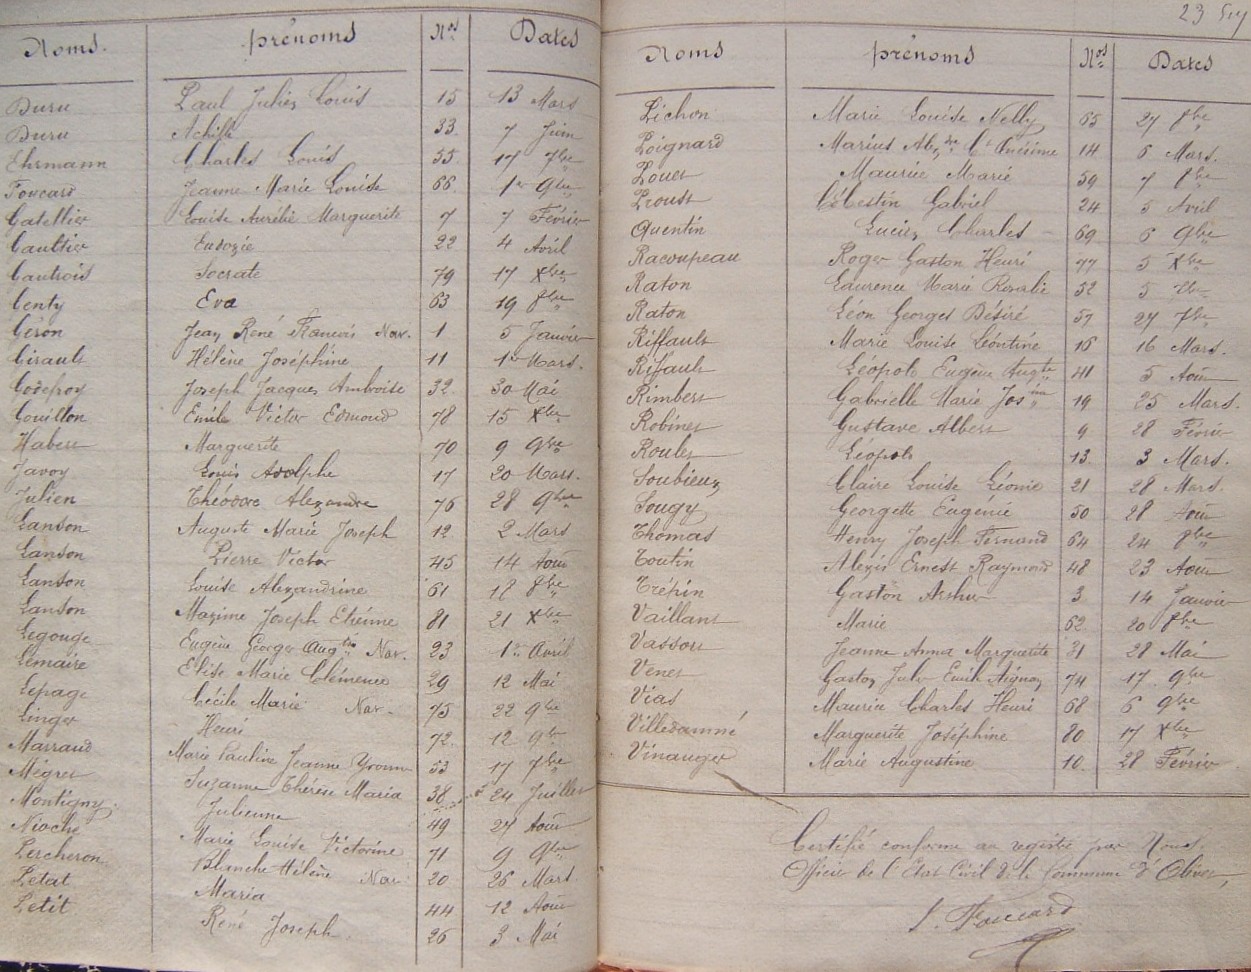 Noms. prénoms Nos Dates
Duru Paul Julien Louis 15 13 Mars
Duru Achille 33 7 Juin
Ehrmann Charles Louis 55 17 7bre
Foucard Jeanne Marie Louise 66 1er 9bre
Gatellier Louise Aurélie Marguerite 7 7 Février
Gaultier Eudoxie 22 4 Avril
Gautrois Socrate 79 17 Xbre
Genty Eva 63 19 8bre
Géron Jean René Francois Nav. 1 5 Janvier
Girault Hélène Joséphine 11 1er Mars.
Godefroy Joseph Jacques Ambroise 32 30 Mai
Gouillon Emile Victor Edmond 78 15 Xbre
Habert Marguerite 70 9 9bre
Javoy Louis Adolphe 17 20 Mars.
Julien Théodore Alexandre 76 28 9bre
Landon Auguste Marie Joseph 12 2 Mars
Landon Pierre Victor 45 14 Août
Landon Louise Alexandrine 61 18 8bre
Landon Maxime Joseph Etienne 81 21 Xbre
Legouge Eugène Georges Augtin Nav. 23 1er Avril
Lemaire Elise Marie Clémence 29 12 Mai
Lepage Cécile Marie Nav. 75 22 9bre
Linger Henri 72 12 9bre
Marraud Marie Pauline Jeanne Yvonne 53 17 7bre
Mégret Suzanne Thérèse Maria 38 24 Juillet
Montigny Julienne 49 27 Août
Nioche Marie Louise Victorine 71 9 9bre
Percheron Blanche Hélène Nav. 20 26 Mars.
Petat Maria 44 12 Août
Petit René Joseph 26 3 Mai
23
Noms prénoms Nos Dates
Pichon Marie Louise Nelly 65 27 8bre
Poignard Marius Onésime 14 6 Mars.
Pouet Maurice Marie 59 7 8bre
Proust Célestin Gabriel 24 5 Avril
Quentin Lucien Charles 69 6 9bre
Racoupeau Roger Gaston Henri 77 5 Xbre
Raton Laurence Marie Rosalie 52 5 7bre
Raton Léon Georges Désiré 57 27 7bre
Riffault Marie Louise Léontine 16 16 Mars.
Riffault Léopold Eugène Augte 41 5 Août
Rimbert Gabrielle Marie Josine 19 25 Mars.
Robinet Gustave Albert 9 28 Février
Roulet Léopold 13 3 Mars.
Soubieux Claire Louise Léonie 21 28 Mars.
Sougy Georgette Eugénie 50 28 Août
Thomas Henry Joseph Fernand 64 24 8bre
Toutin Alexis Ernest Raymond 48 23 Août
Trépin Gaston Arthur 3 14 Janvier
Vaillant Marie 62 20 8bre
Vasson Jeanne Anna Marguerite 31 28 Mai
Venet Gaston Jules Emile Aignan 74 17 9bre
Vias Maurice Charles Henri 68 6 9bre
Villedamné Marguerite Joséphine 80 17 Xbre
Vinauger Marie Augustine 10 28 Février
Certifié conforme au registre par Nous,
Officier de l'Etat Civil de la Commune d'Olivet,
Foucard